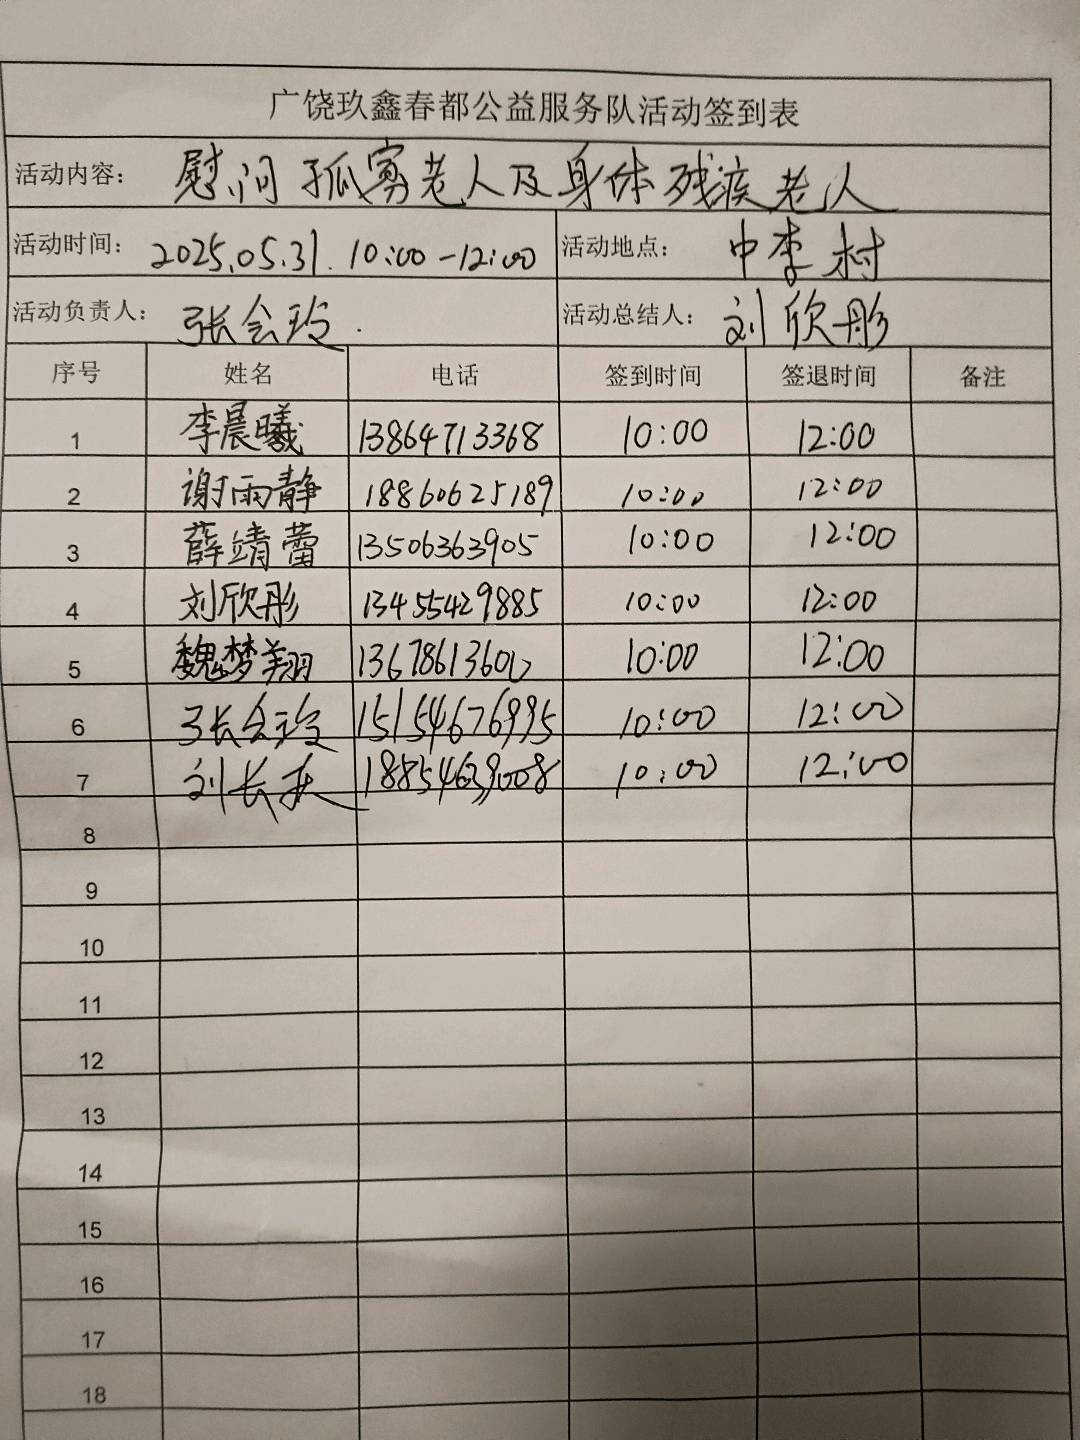 广饶玖鑫春都公益服务队活动签到表
活动内容： 慰问孤寡老人及身体残疾老人
活动时间： 2025.05.31. 10:00-12:00 活动地点： 中李村
活动负责人： 张会玲. 活动总结人： 刘欣彤
序号 姓名 电话 签到时间 签退时间 备注
1 李晨曦 13864713368 10:00 12:00
2 谢雨静 18860625189 10:00 12:00
3 薛靖蕾 13506363905 10:00 12:00
4 刘欣彤 13455429885 10:00 12:00
5 魏梦翔 10:00 12:00
6 张会玲 15154676995 10:00 12:00
7 10:00 12:00
8
9
10
11
12
13
14
15
16
17
18